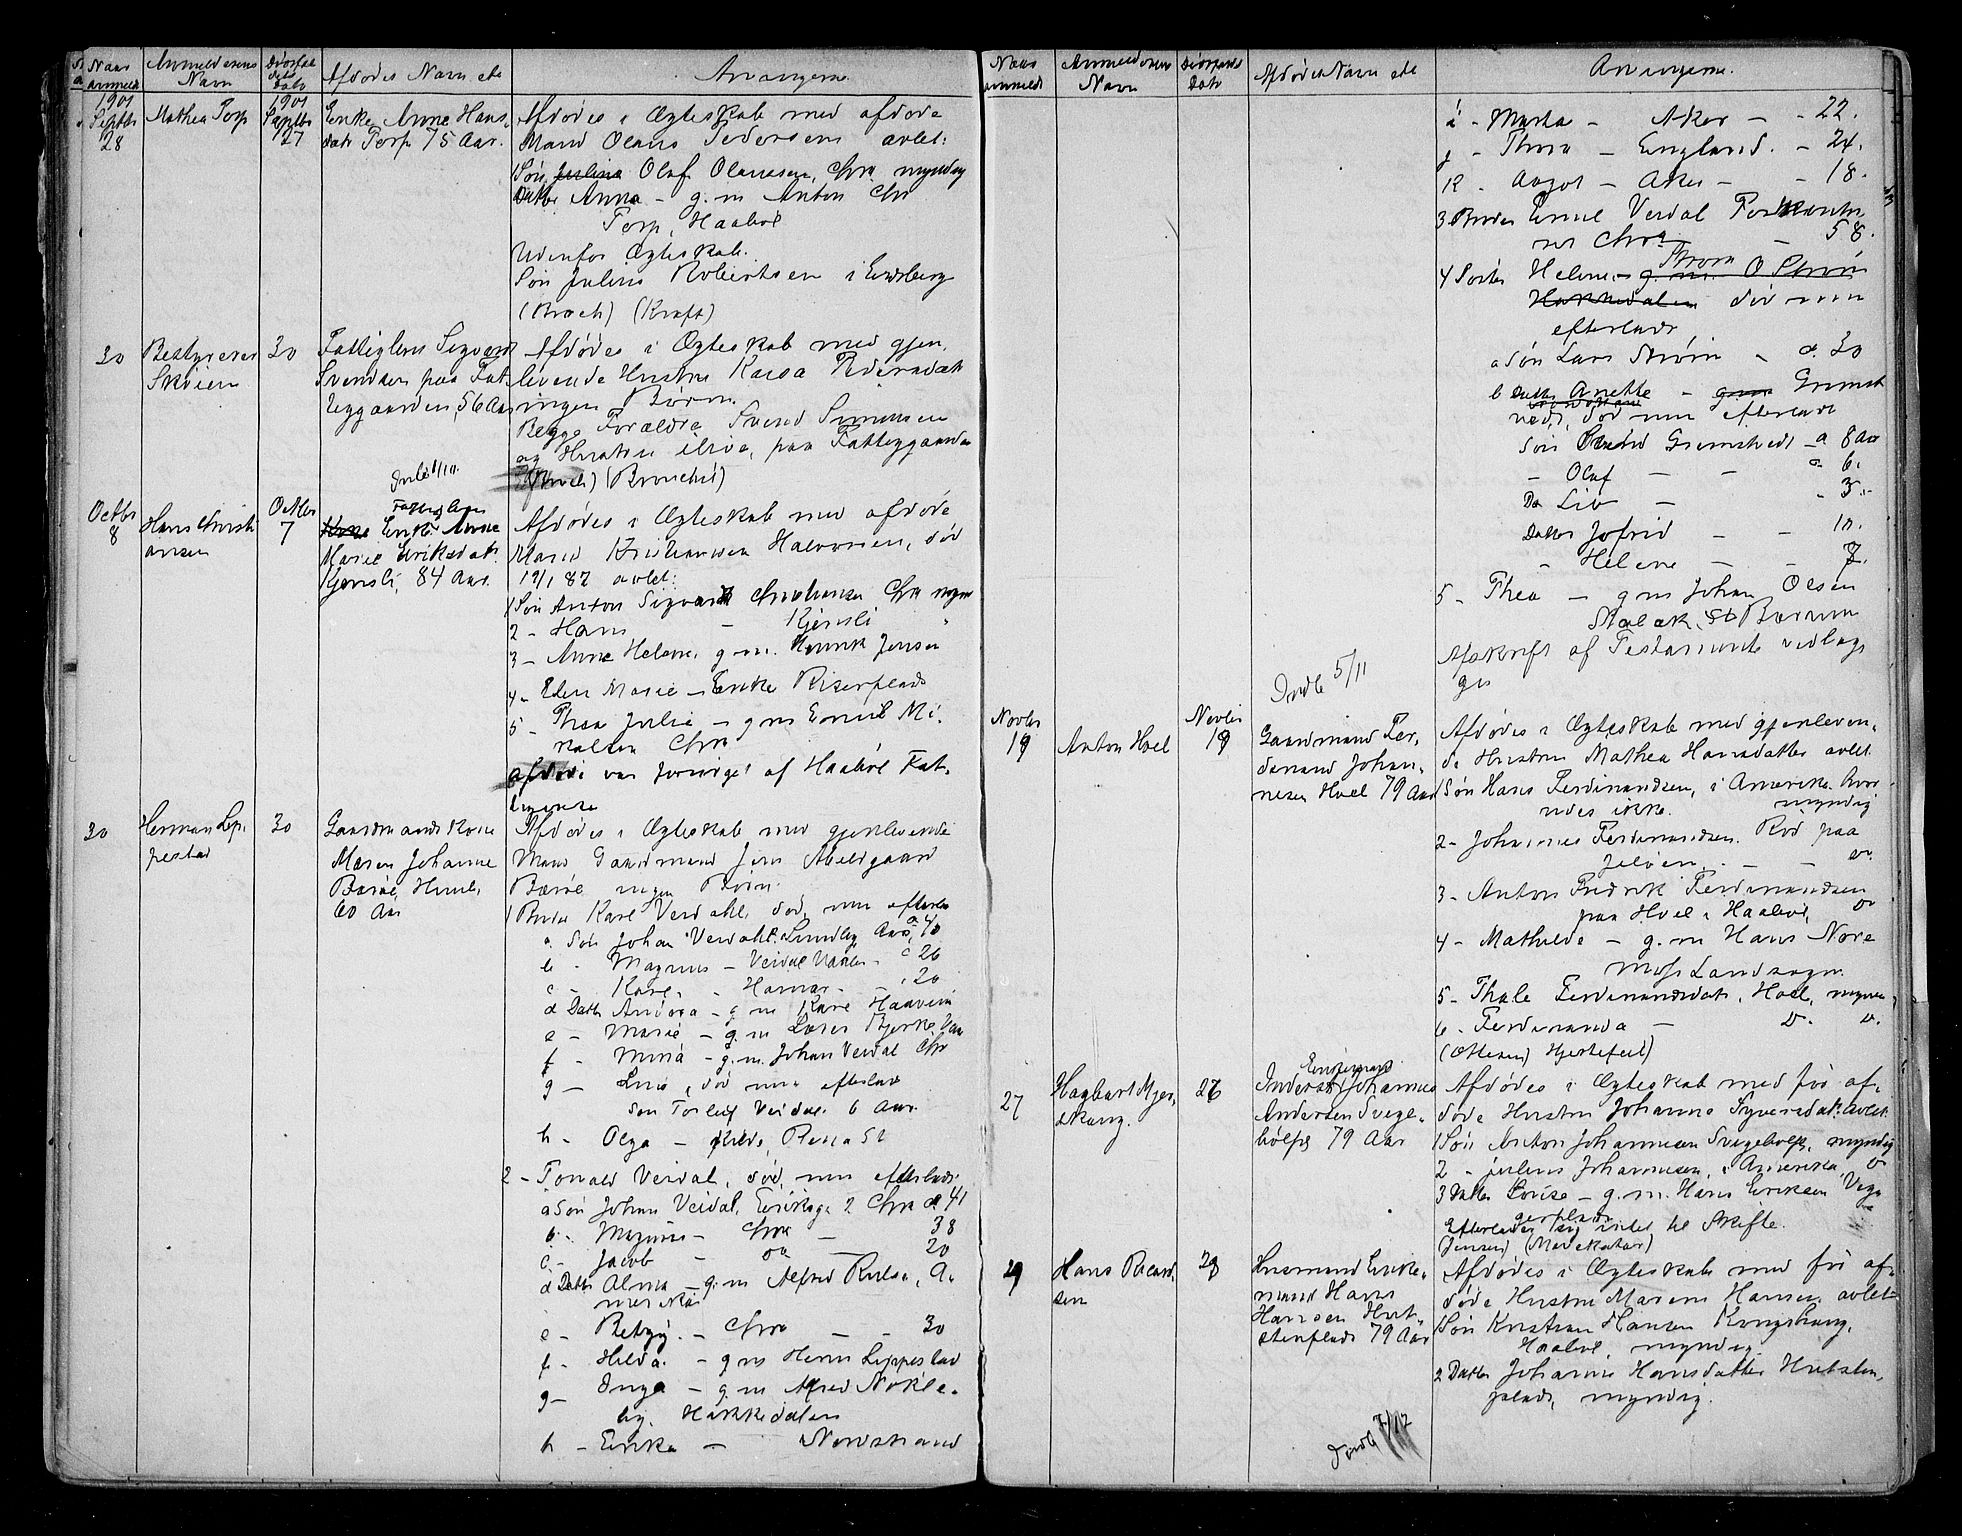 Naar anmeldt
Anmelderens Navn
Dødsfaldets Dato
Afdødes Navn etc
Arvingerne
1901
Septbr 28
Mathea Torp
1901
Septbr 27
Enke Anne Hans-
datr Torp 75 Aar.
Afdødes i Ægteskab med afdøde
Mand Olaus Pedersens avlet:
Søn Julius Olaf Olaussen, Chra myndig
Datter Anna - g. m Anton Chr
Torp, Haabøl
Udenfor Ægteskab.
Søn Julius Robertsen i Eidsberg
(Broch) (Kraft)
30
Bestyreren
Skøien
30
Fattiglem Sigvard
Svendsen paa Fat-
tiggaarden, 56 Aar
Afdødes i Ægteskab med gjen-
levende Hustru Kaisa Pedersdatr
ingen Børn.
Begge Forældre Svend Simensen
og Hustru ilive, paa Fattiggaarden
(Broch) (Bronchit)
Octbr 8
Hans Christi
ansen
Octbr 7
Fattiglem
Kone Enke Anne
Marie Eriksdatr
Kjensli, 84 Aar.
Afdødes i Ægteskab med afdøde
Mand Kristiansen Halvorsen, død
19/1 87 avlet:
1 Søn Anton Sigvard Christiansen Chra mynd
2 - Hans - Kjensli
3 - Anne Helene, g. m. Henrik Jensen
4 - Elen Marie - Enke Riserplads
5 - Thea Julie - g m Emil Mi-
kalsen Chra
Afdøde var forsørget af Haabøl Fat-
tigvæsen
30
Herman Lep-
pestad
30
Gaardmandskone
Maren Johanne
60 Aar
Afdødes i Ægteskab med gjenlevende
Mand Gaardmand Jens Abelsgaard
ingen Børn.
1 Broder Karl Verdahl, død, men efterlod
a. Søn Johan Verdahl. Lundby a 40
b - Magnus - Verdal - a 26
c - Karl - Hamar - 20
d Datter Andora - g. m Kare Haavein
e - Marie - g. m Lars Bjerke
f - Mina - g. m. Johan Verdal Chr
g - død men efterlod
Søn Torleif Verdal 6 Aar.
h - Olga -
2 - Tonald Verdal, død, men efterlod
a Søn Johan Verdal, Eriksga 2 Chra a 41
b - Magnus - Chra - 38
c - Jacob - do - 20
d Datter Alma - g. m Alfred A-
merika
e - Betzy - Chra - - 30
f - Hilda - g m Herm Leppestad
g - Inga - g. m Alfred Nøkle-
by. Hakkedalen
h - Erika - Nordstrand
Naar anmeldt
Anmelderens Navn
Dødsfalds Dato
Afdødes Navn etc
Arvingerne.
i - Marta - Aker - - 22.
j - Thora - England. - 24.
k - Aagot - Aker - - 18.
3 Broder Emil Verdal
Chra - 58.
Strøm
4 Søster Helene - g. m. O Strøm
Hakkedalen død men
efterlader
a Søn Lars Strøm - a. 30
b Datter Anette - gm Grimst
vedt, død men efterlader
Søn Grimstvedt - a 8 aar
- Olaf - - a 6.
Do Liv - - 3.
Datter Jofrid - - 10.
- Helene - - 7.
5 - Thea - g m Johan Olsen
Bærum
Afskrift af Testamente vedlag-
ges
Indb 5/11
Novbr 19
Anton Hoel
Novbr 19
Gaardmand Fer-
dinand Johan-
nesen Hoel 79 Aar
Afdødes i Ægteskab med gjenleven-
de Hustru Mathea Hansdatter avlet
1 Søn Hans Ferdinandsen, i Amerika. hvor
vides ikke. myndig
2 - Johannes Ferdinandsen. Rød paa
Jeløen. - - do.
3 - Anton Fredrik Ferdinandsen
paa Hoel i Haabøl, do
4 - Mathilde - g. m Hans Nore
Moss Landsogn.
5 - Thale Ferdinandsdatr, Hoel, myndig
6 - Ferdinanda - do. do.
(Ottesen) Hjertefeil)
27
Hagbart Mjer-
skaug.
26
Enkemand
Inderst Johannes
Andersen Svege-
hølps 79 Aar
Afdødes i Ægteskab med før af-
døde Hustru Johanne Syversdatr avlet
1 Søn Anton Johannesen Svegeholps, myndig
2 - Julius Johannesen, i Amerika do
3 Datter Lovise - g. m. Hans Eriksen
Efterlader sig intet til Skifte.
(Jensen)
29
Hans Ricard-
sen
28
Husmand Enke-
mand Hans
Hansen
79 Aar
Afdødes i Ægteskab med før af-
døde Hustru Maren Hansen avlet
1 Søn Kristian Hansen Kongshaug,
Haabøl, myndig.
2 Datter Johanne Hansdatter
plads, myndig.
Indb 7/12